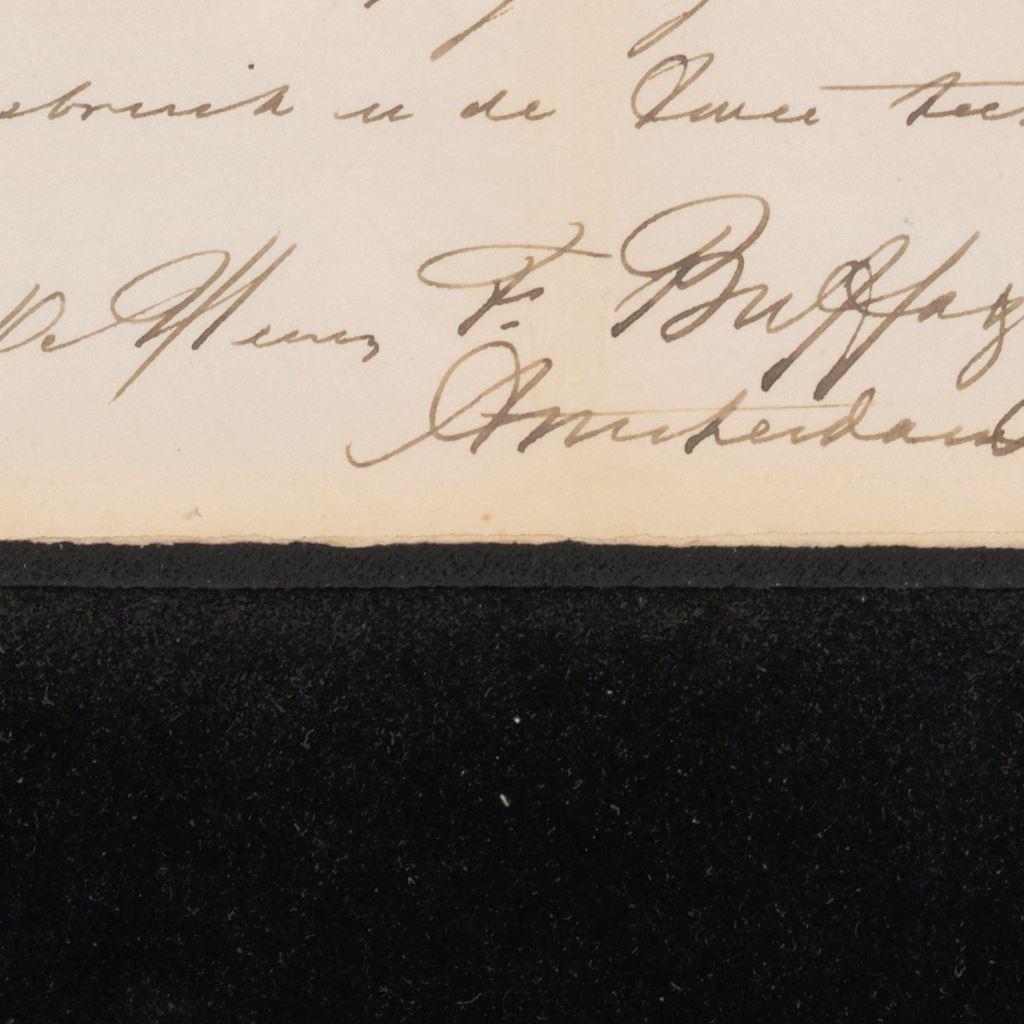 ebruik u de Twee tee
De Heeren F. Buffa &
Amsterdam